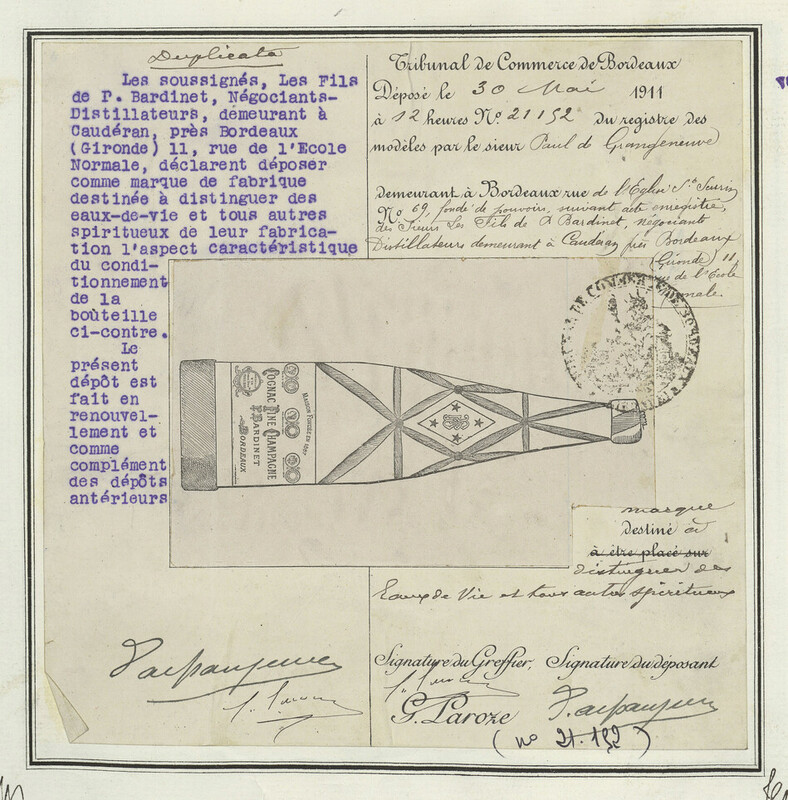 Duplicata
Les soussignés, Les Fils
de P. Bardinet, Négociants-
Distillateurs, demeurant à
Caudéran, près Bordeaux
(Gironde) 11, rue de l'Ecole
Normale, déclarent déposer
comme marque de fabrique
destinée à distinguer des
eaux-de-vie et tous autres
spiritueux de leur fabrica-
tion l'aspect caractéristique
du condi-
tionnement
de la
bouteille
ci-contre.
Le
présent
dépôt est
fait en
renouvel-
lement et
comme
complément
des dépôts
antérieurs
Tribunal de Commerce de Bordeaux
Déposé le 30 Mai 1911
à 12 heures No. 21152 du registre des
modèles par le sieur Paul de Grangeneuve
demeurant à Bordeaux rue de l'Eglise St Seurin
No 69, fondé de pouvoirs, suivant acte enregistré,
des Sieurs Les Fils de P Bardinet, négociant
Distillateurs demeurant à Caudéran près Bordeaux
(Gironde) 11,
rue de l'Ecole
Normale.
TRIBUNAL DE COMMERCE DE BORDEAUX
MAISON FONDÉE EN
COGNAC FINE CHAMPAGNE
P. BARDINET
BORDEAUX
marque
destiné à
à être placé sur
distinguer des
Eaux de Vie et tous autres spiritueux
Signature du Greffier, Signature du déposant
G. Laroze
(no 21.152)